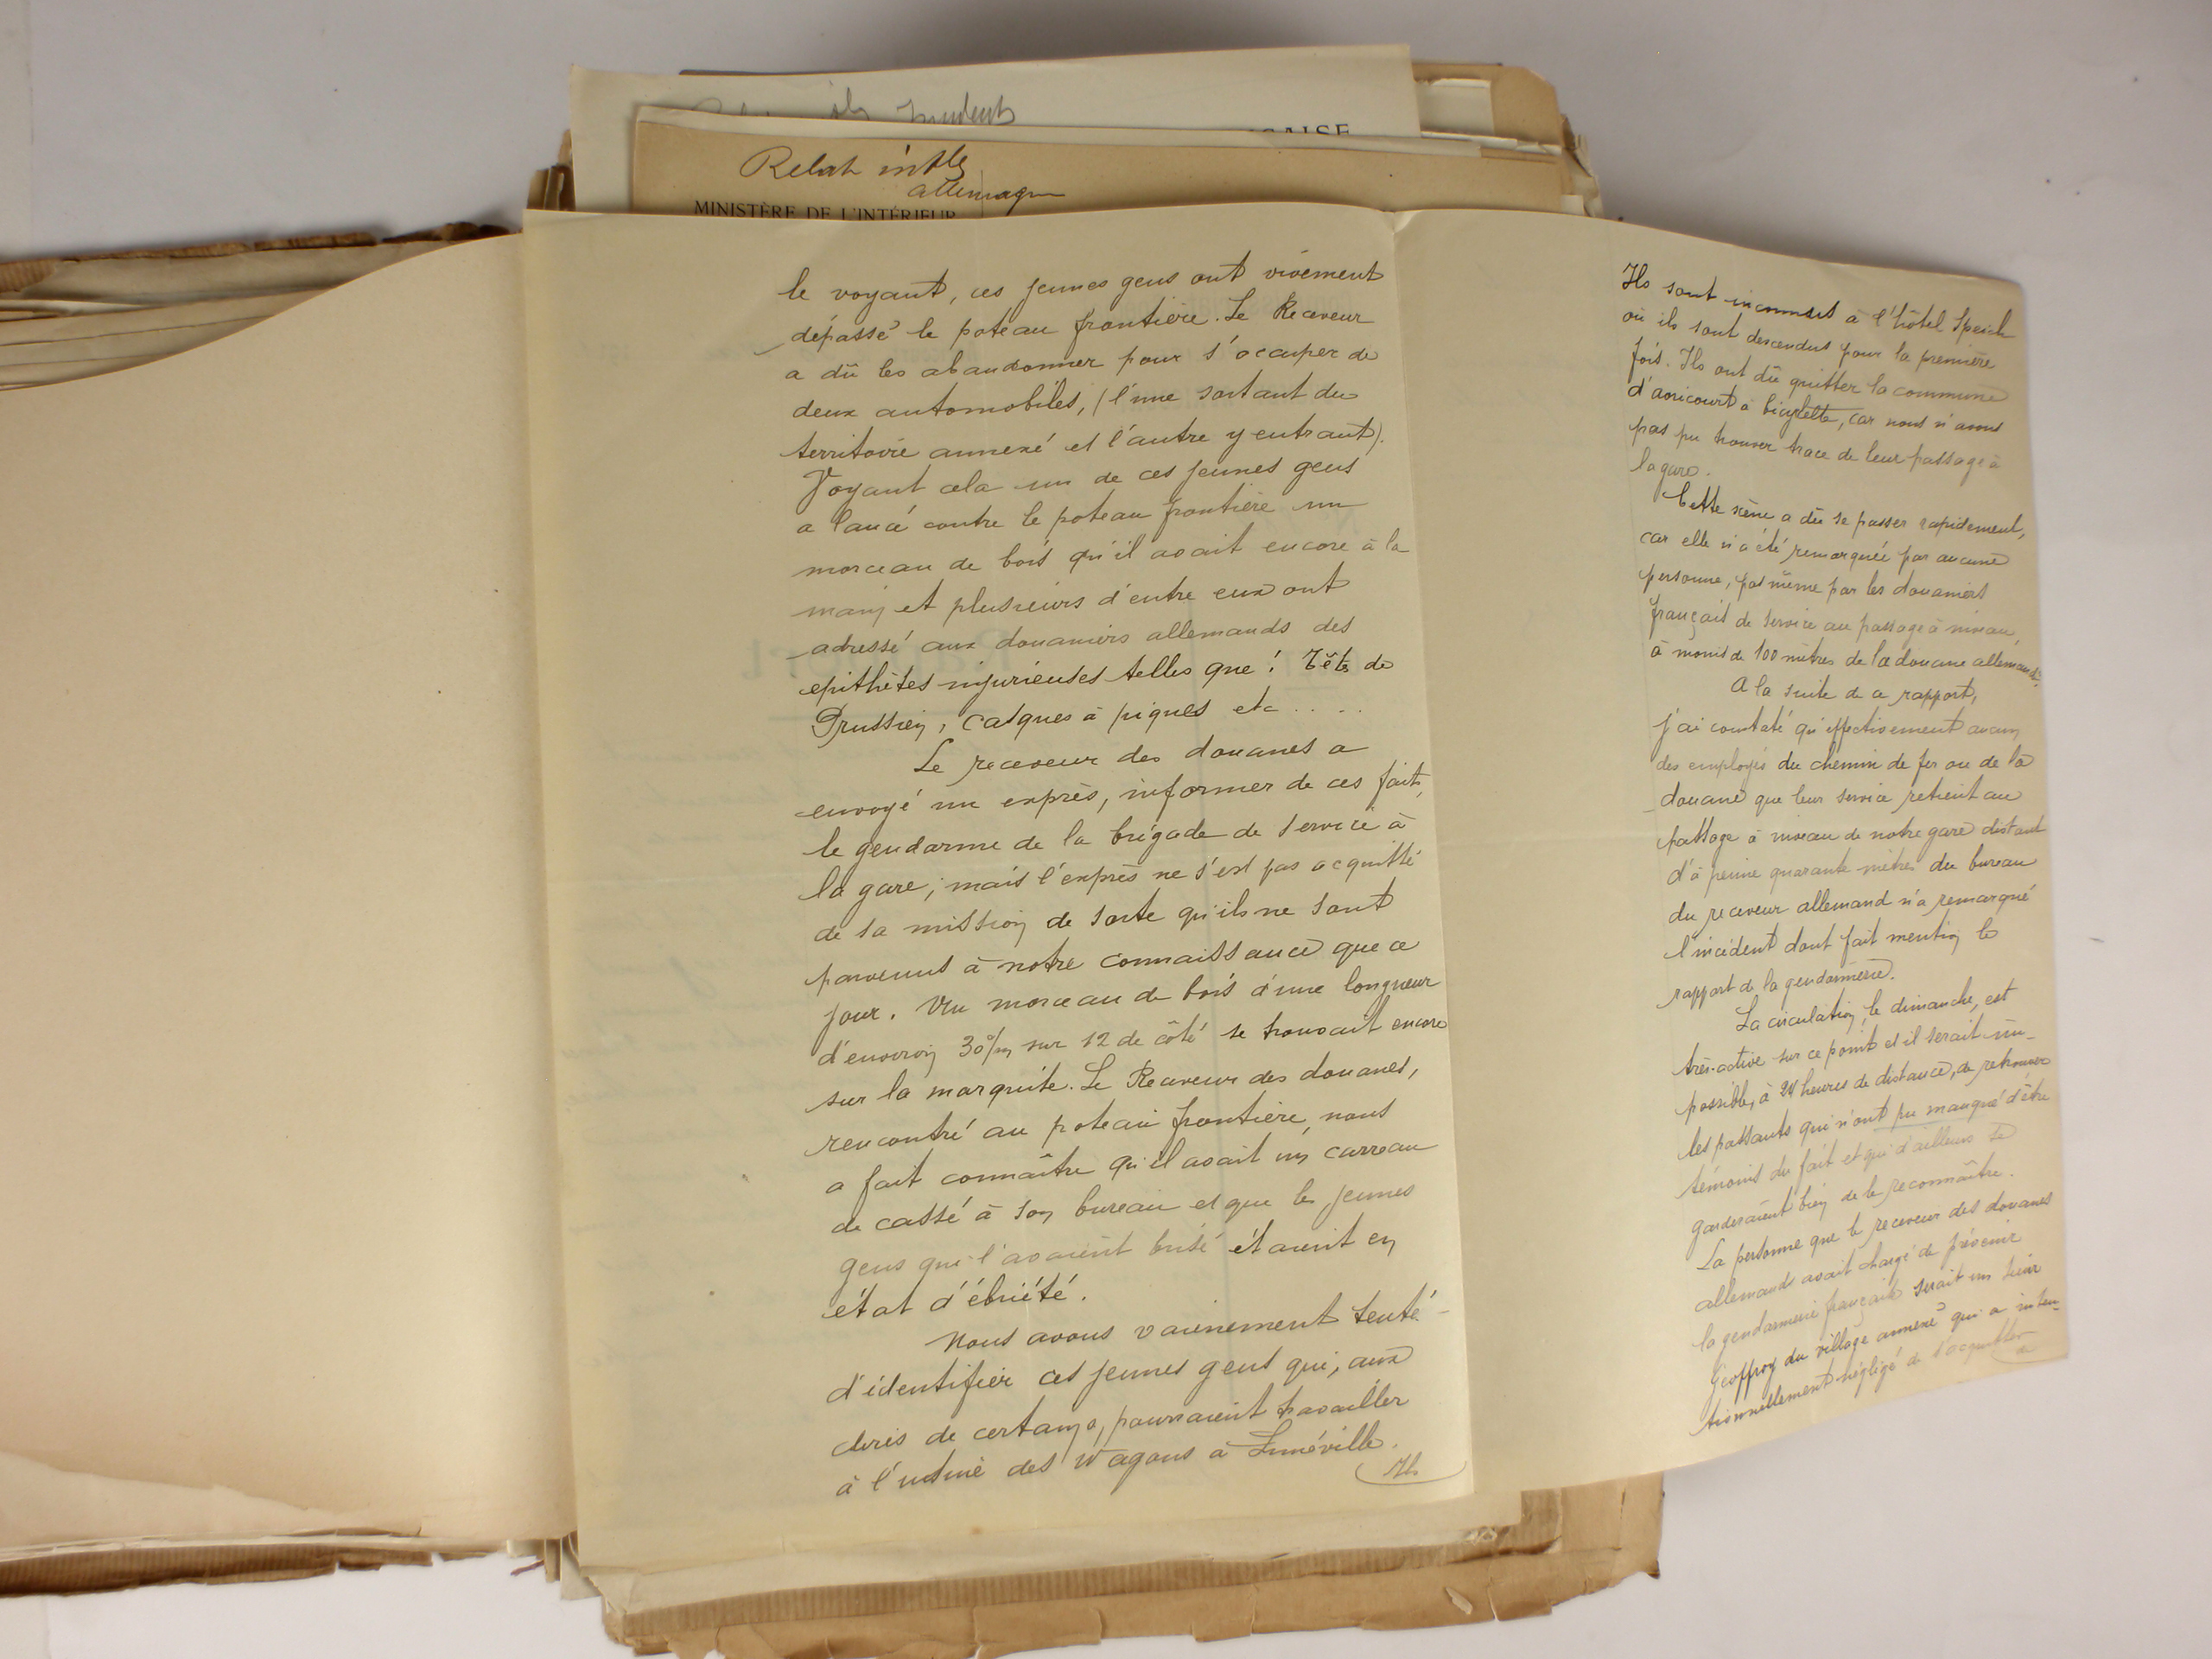 Incidents
ÇAISE
Relat intles
allemagne
MINISTÈRE DE L'INTÉRIEUR
le voyant, ces jeunes gens ont vivement
dépassé le poteau frontière. Le Receveur
a dû les abandonner pour s'occuper de
deux automobiles, (l'une sortant du
territoire annexé et l'autre y entrant).
Voyant cela un de ces jeunes gens
a lancé contre le poteau frontière un
morceau de bois qu'il avait encore à la
main et plusieurs d'entre eux ont
adressé aux douaniers allemands des
epithètes injurieuses telles que : Têtes de
Prussien, casques à piques etc....
Le receveur des douanes a
envoyé un exprès, informer de ces faits,
le gendarme de la brigade de service à
la gare ; mais l'exprès ne s'est pas acquitté
de sa mission de sorte qu'ils ne sont
parvenus à notre connaissance que ce
jour. Un morceau de bois d'une longueur
d'environ 30 c/m sur 12 de côté se trouvait encore
sur la marquise. Le Receveur des douanes,
rencontré au poteau frontière, nous
a fait connaître qu'il avait un carreau
de cassé à son bureau et que les jeunes
gens qui l'avaient brisé étaient en
état d'ébriété.
Nous avons vainement tenté
d'identifier ces jeunes gens qui, aux
dires de certains, pourraient travailler
à l'usine des Wagons à Lunéville.
Ils
Ils sont inconnus à l'hôtel Speich
où ils sont descendus pour la première
fois. Ils ont dû quitter la commune
d'avricourt à bicyclette, car nous n'avons
pas pu trouver trace de leur passage à
la gare.
Cette scène a dû se passer rapidement,
car elle n'a été remarquée par aucune
personne, pas même par les douaniers
français de service au passage à niveau,
à moins de 100 mètres de la douane allemande.
A la suite de ce rapport,
j'ai constaté qu'effectivement aucun
des employés du chemin de fer ou de la
douane que leur service retient au
passage à niveau de notre gare distant
d'à peine quarante mètres du bureau
du receveur allemand n'a remarqué
l'incident dont fait mention le
rapport de la gendarmerie.
La circulation, le dimanche, est
très active sur ce point et il serait im-
possible, à 24 heures de distance, de retrouver
les passants qui n'ont pu manqué d'être
témoins du fait et qui d'ailleurs se
garderaient bien de le reconnaître.
La personne que le receveur des douanes
allemand avait chargé de prévenir
la gendarmerie française serait un sieur
Geoffroy du village annexé qui a inten-
tionnellement négligé de s'acquitter